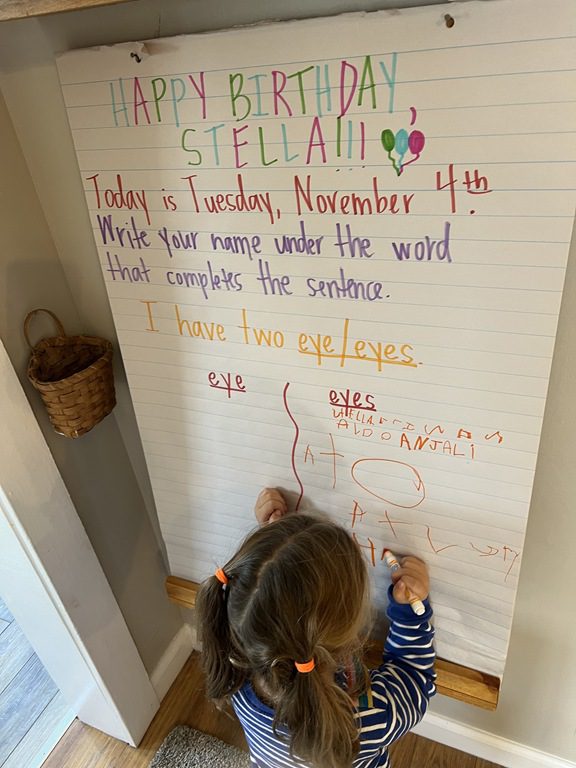 HAPPY BIRTHDAY,
STELLA!!!
Today is Tuesday, November 4th.
Write your name under the word
that completes the sentence.
I have two eye/eyes.
eye eyes
ALDO ANJALI